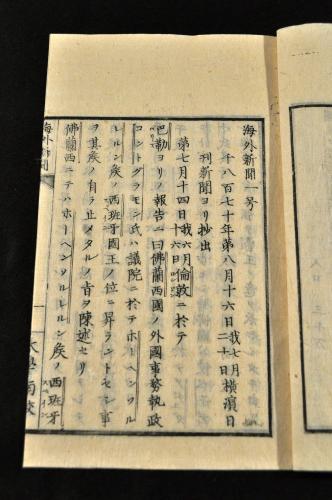 海外新聞一号
千八百七十年第八月十六日我七月二十日横濱日
刊新聞ヨリ抄出
第七月十四日我六月十六日倫敦ニ於テ
巴勒ヨリノ報告ニ曰佛蘭西國ノ外國事務執政
コントグラモン氏ハ議院ニ於テホーヘンソル
レルン矦ノ西班牙國王ノ位ニ昇ラントセシ事
ヲ其矦ノ自ラ止メタルノ旨ヲ陳述セリ
佛蘭西ニテハホーヘンソルレルン矦ノ西班牙
海外新聞
大學南校